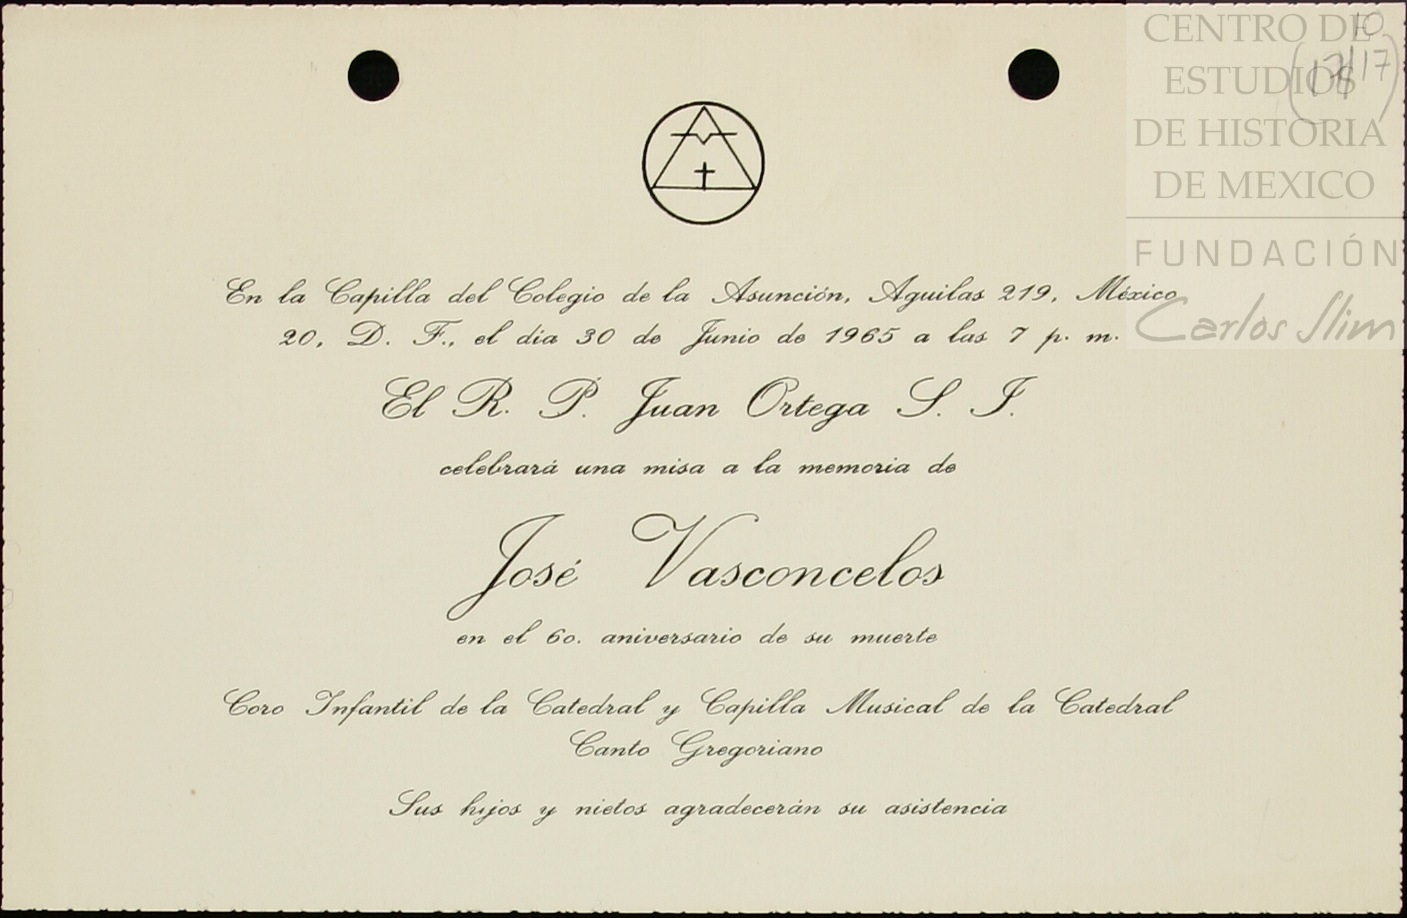 CENTRO DE
ESTUDIOS
DE HISTORIA
DE MEXICO
FUNDACIÓN
Carlos Slim
En la Capilla del Colegio de la Asunción, Aguilas 219, México
20, D. F., el día 30 de Junio de 1965 a las 7 p. m.
El R. P. Juan Ortega S. J.
celebrará una misa a la memoria de
José Vasconcelos
en el 6o. aniversario de su muerte
Coro Infantil de la Catedral y Capilla Musical de la Catedral
Canto Gregoriano
Sus hijos y nietos agradecerán su asistencia